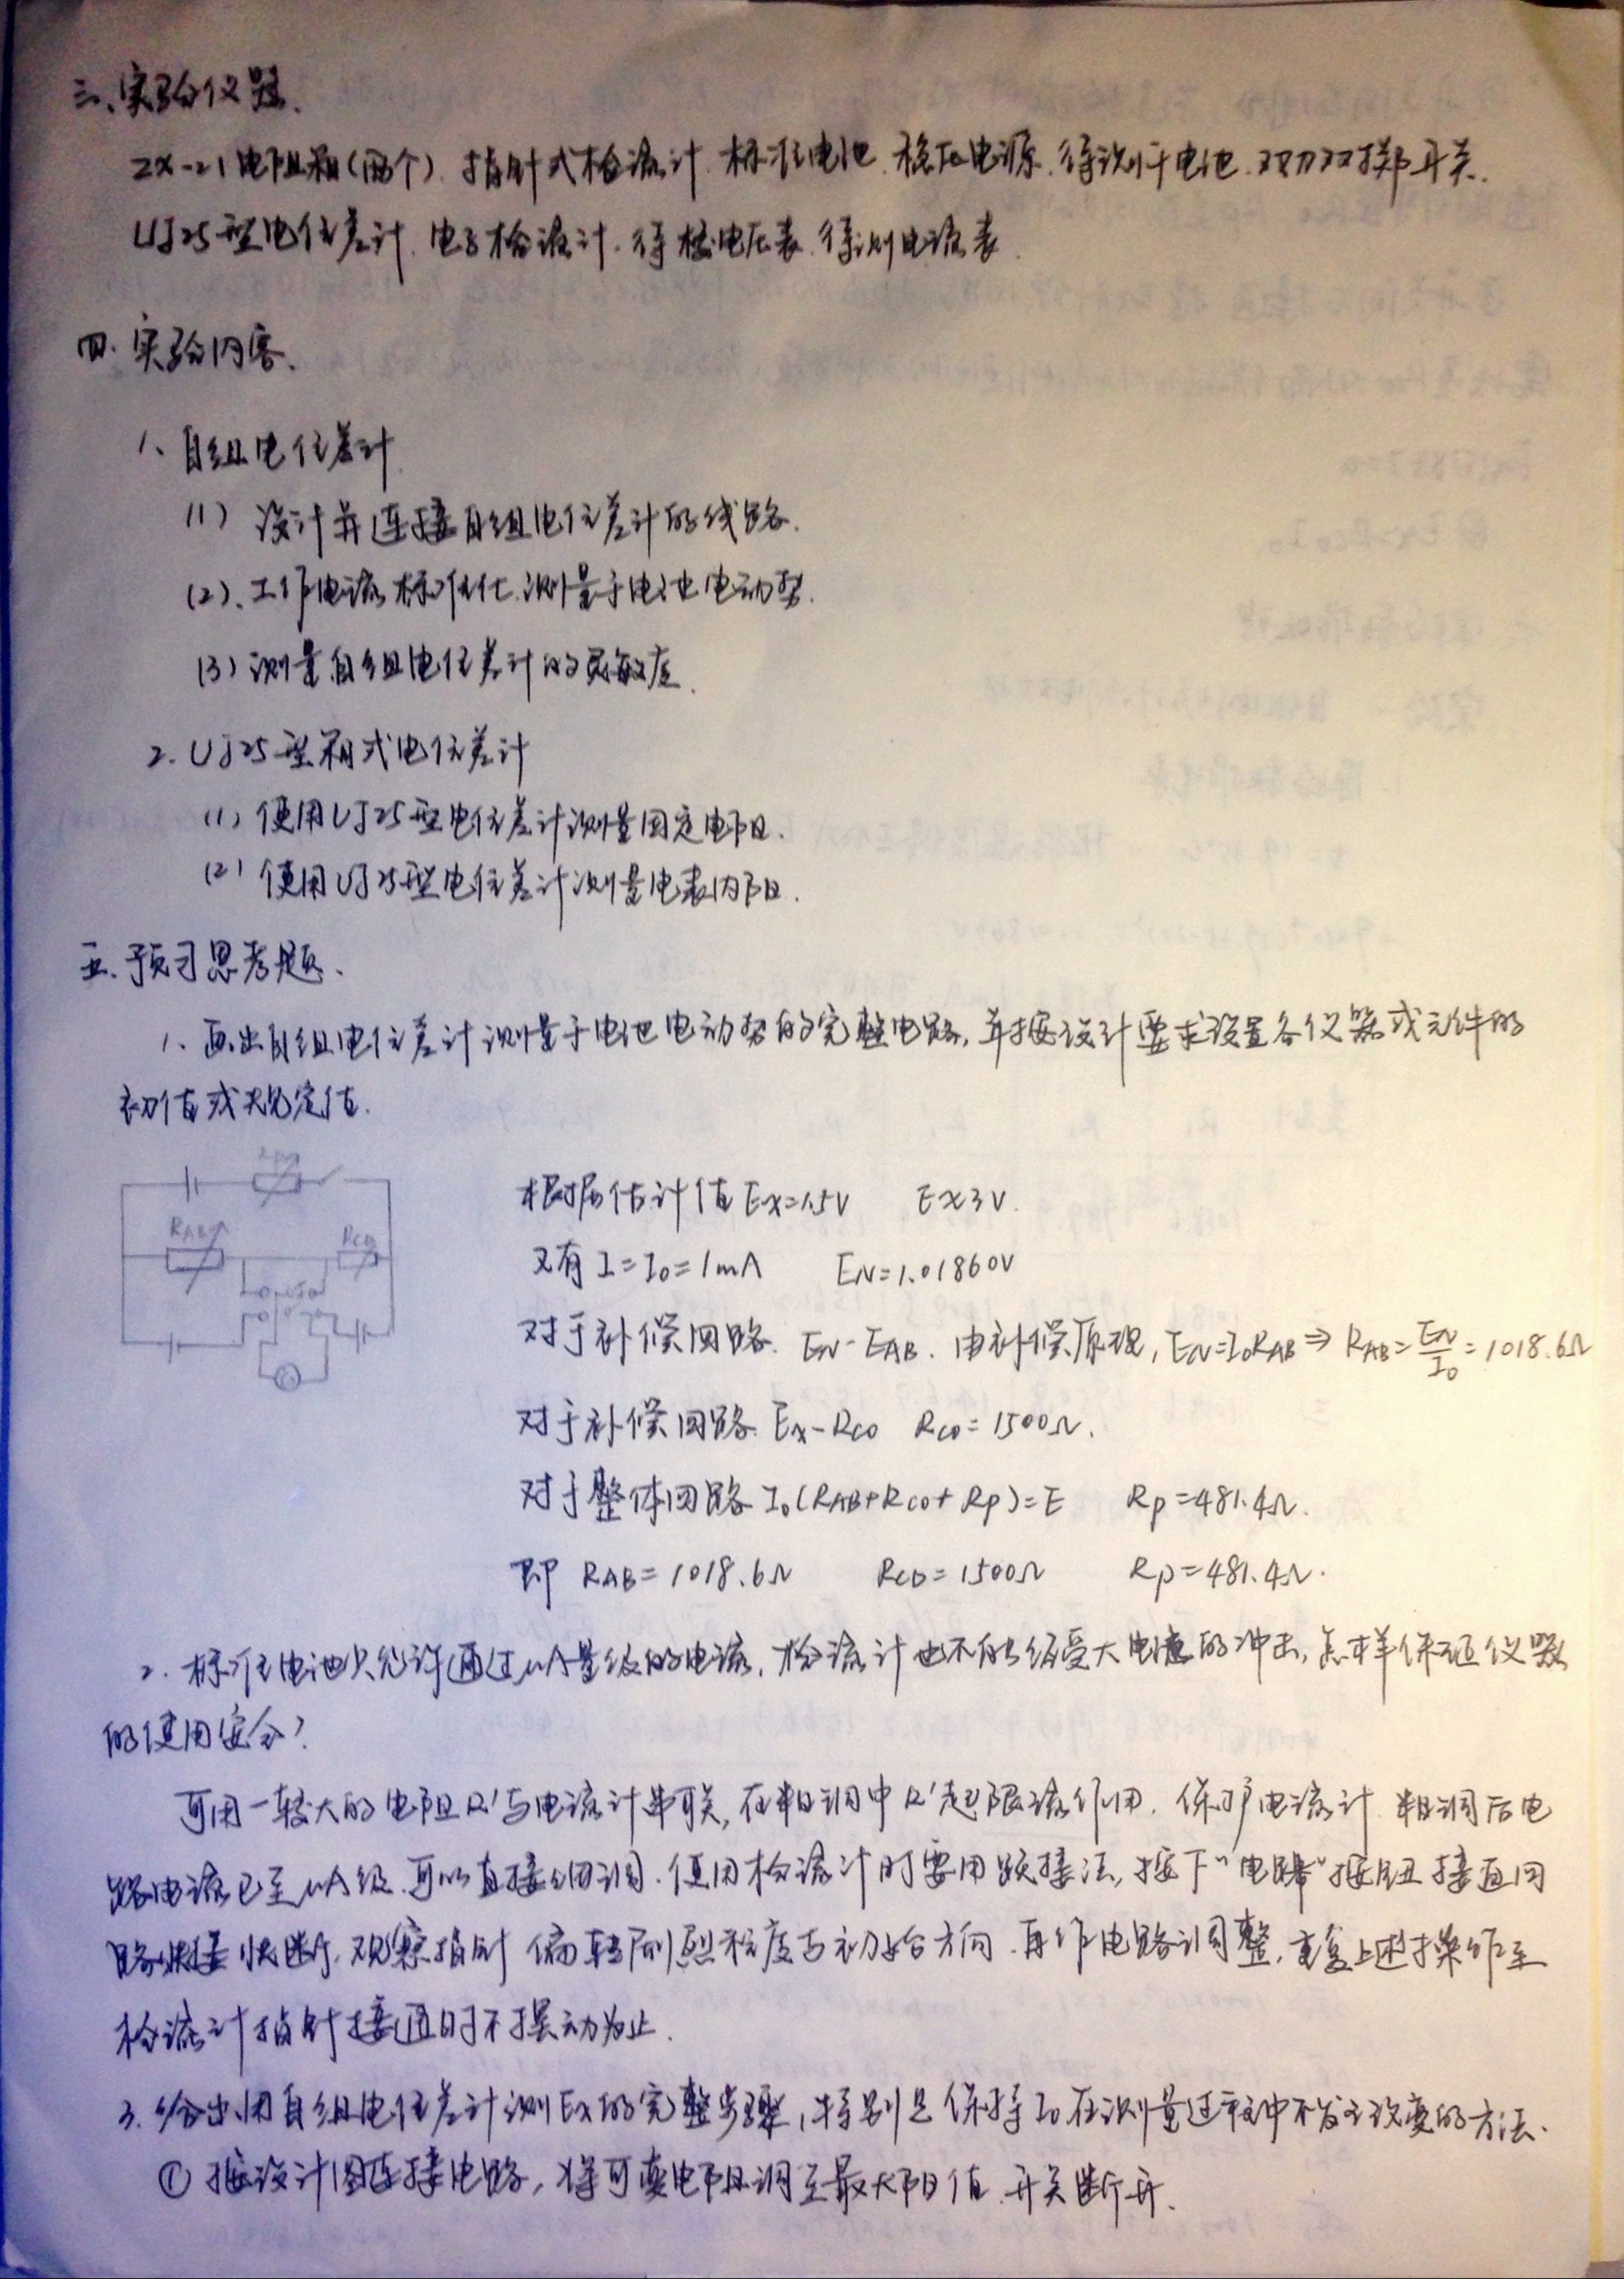 三、实验仪器.
ZX-21电阻箱(两个). 指针式检流计. 标准电池. 稳压电源. 待测干电池. 双刀双掷开关.
UJ25型电位差计. 电子检流计. 待校电压表. 待测电流表.
四. 实验内容.
1、自组电位差计
(1) 设计并连接自组电位差计的线路.
(2). 工作电流标准化. 测量干电池电动势.
(3) 测量自组电位差计的灵敏度.
2. UJ25型箱式电位差计
(1) 使用UJ25型电位差计测量固定电阻.
(2) 使用UJ25型电位差计测量电表内阻.
五. 预习思考题.
1、画出自组电位差计测量干电池电动势的完整电路, 并按设计要求设置各仪器或元件的
初值或规定值.
RAB
RCD
G
根据估计值 Ex=1.5V E≈3V.
又有 I=I₀=1mA EN=1.01860V
对于补偿回路. EN-EAB. 由补偿原理, EN=I₀RAB ⇒ RAB=EN/I₀=1018.6Ω
对于补偿回路 Ex-RCD RCD=1500Ω.
对于整体回路 I₀(RAB+RCD+Rp)=E Rp=481.4Ω.
即 RAB=1018.6Ω RCD=1500Ω Rp=481.4Ω.
2. 标准电池只允许通过μA量级的电流, 检流计也不能经受大电流的冲击, 怎样保证仪器
的使用安全?
可用一较大的电阻R'与电流计串联, 在粗调中R'起限流作用. 保护电流计. 粗调后电
路电流已至μA级. 可以直接细调. 使用检流计时要用跃接法, 按下"电路"按钮接通回
路快断. 观察指针偏转剧烈程度与初始方向. 再作电路调整, 重复上述操作至
检流计指针接通时不摆动为止.
3. 给出用自组电位差计测Ex的完整步骤, 特别是保持I₀在测量过程中不发生改变的方法.
① 按设计图连接电路, 将可变电阻调至最大阻值. 开关断开.